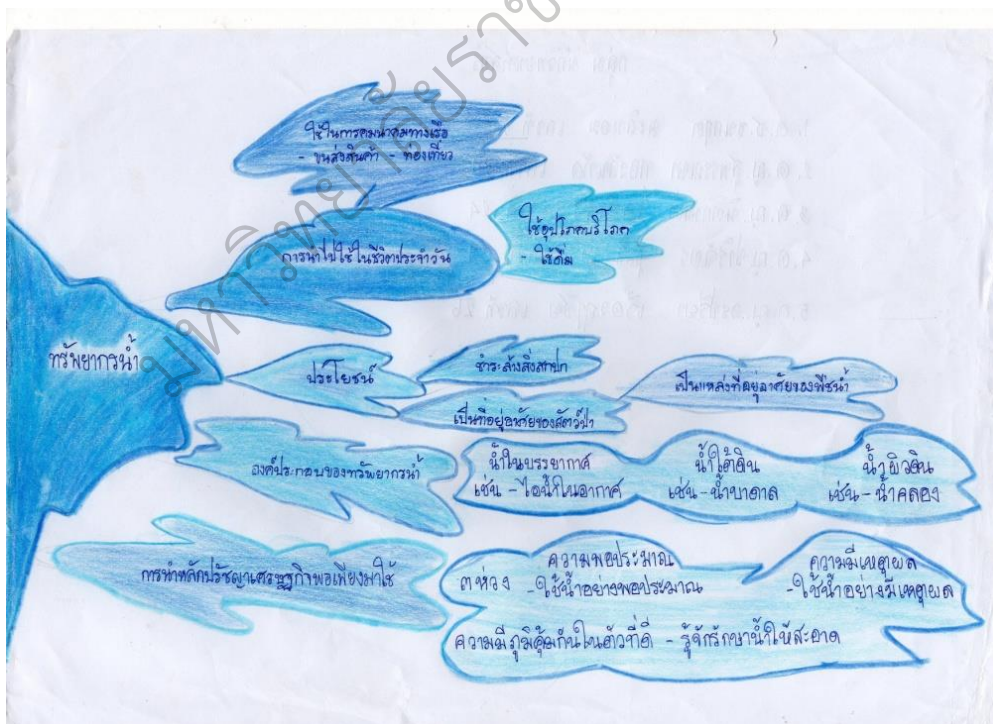 มหาวิทยาลัยราช
ใช้ในการคมนาคมทางเรือ
- ขนส่งสินค้า - ท่องเที่ยว
การนำไปใช้ในชีวิตประจำวัน
ใช้อุปโภคบริโภค
- ใช้ดื่ม
ทรัพยากรน้ำ
ประโยชน์
ชำระล้างสิ่งสกปรก
เป็นที่อยู่อาศัยของสัตว์ป่า
เป็นแหล่งที่อยู่อาศัยของพืชน้ำ
องค์ประกอบของทรัพยากรน้ำ
น้ำในบรรยากาศ
เช่น - ไอน้ำในอากาศ
น้ำใต้ดิน
เช่น - น้ำบาดาล
น้ำผิวดิน
เช่น - น้ำคลอง
การนำหลักปรัชญาเศรษฐกิจพอเพียงมาใช้
๓ ห่วง
ความพอประมาณ
- ใช้น้ำอย่างพอประมาณ
ความมีเหตุผล
- ใช้น้ำอย่างมีเหตุผล
ความมีภูมิคุ้มกันในตัวที่ดี - รู้จักรักษาน้ำให้สะอาด